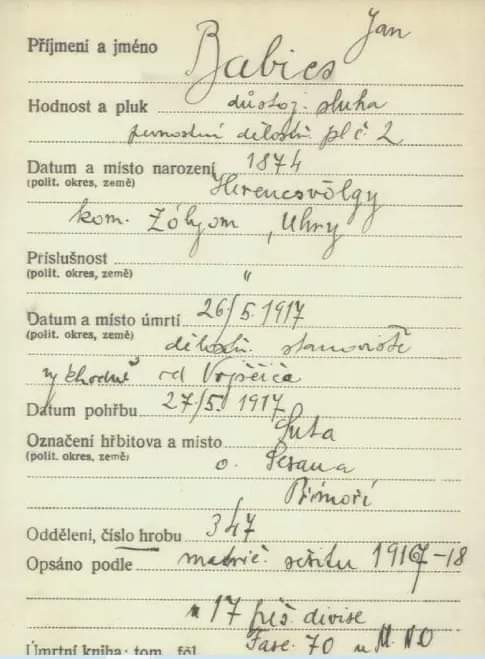 Jan
Příjmení a jméno Babics
Hodnost a pluk důstoj. sluha
pevnostní dělostř. pl. č. 2
Datum a místo narození 1874
(polit. okres, země) Herencsvölgy
kom. Zólyom, Uhry
Příslušnost
(polit. okres, země) "
Datum a místo úmrtí 26/5. 1917
(polit. okres, země) dělostř. stanoviště
východně od
Datum pohřbu 27/5. 1917
Označení hřbitova a místo Suta
(polit. okres, země) o. Sesana
Přímoří
Oddělení, číslo hrobu 347
Opsáno podle matrič. sešitu 1917-18
17 pěš. divise
Úmrtní kniha: tom. fol. Fasc. 70 u M. N. O